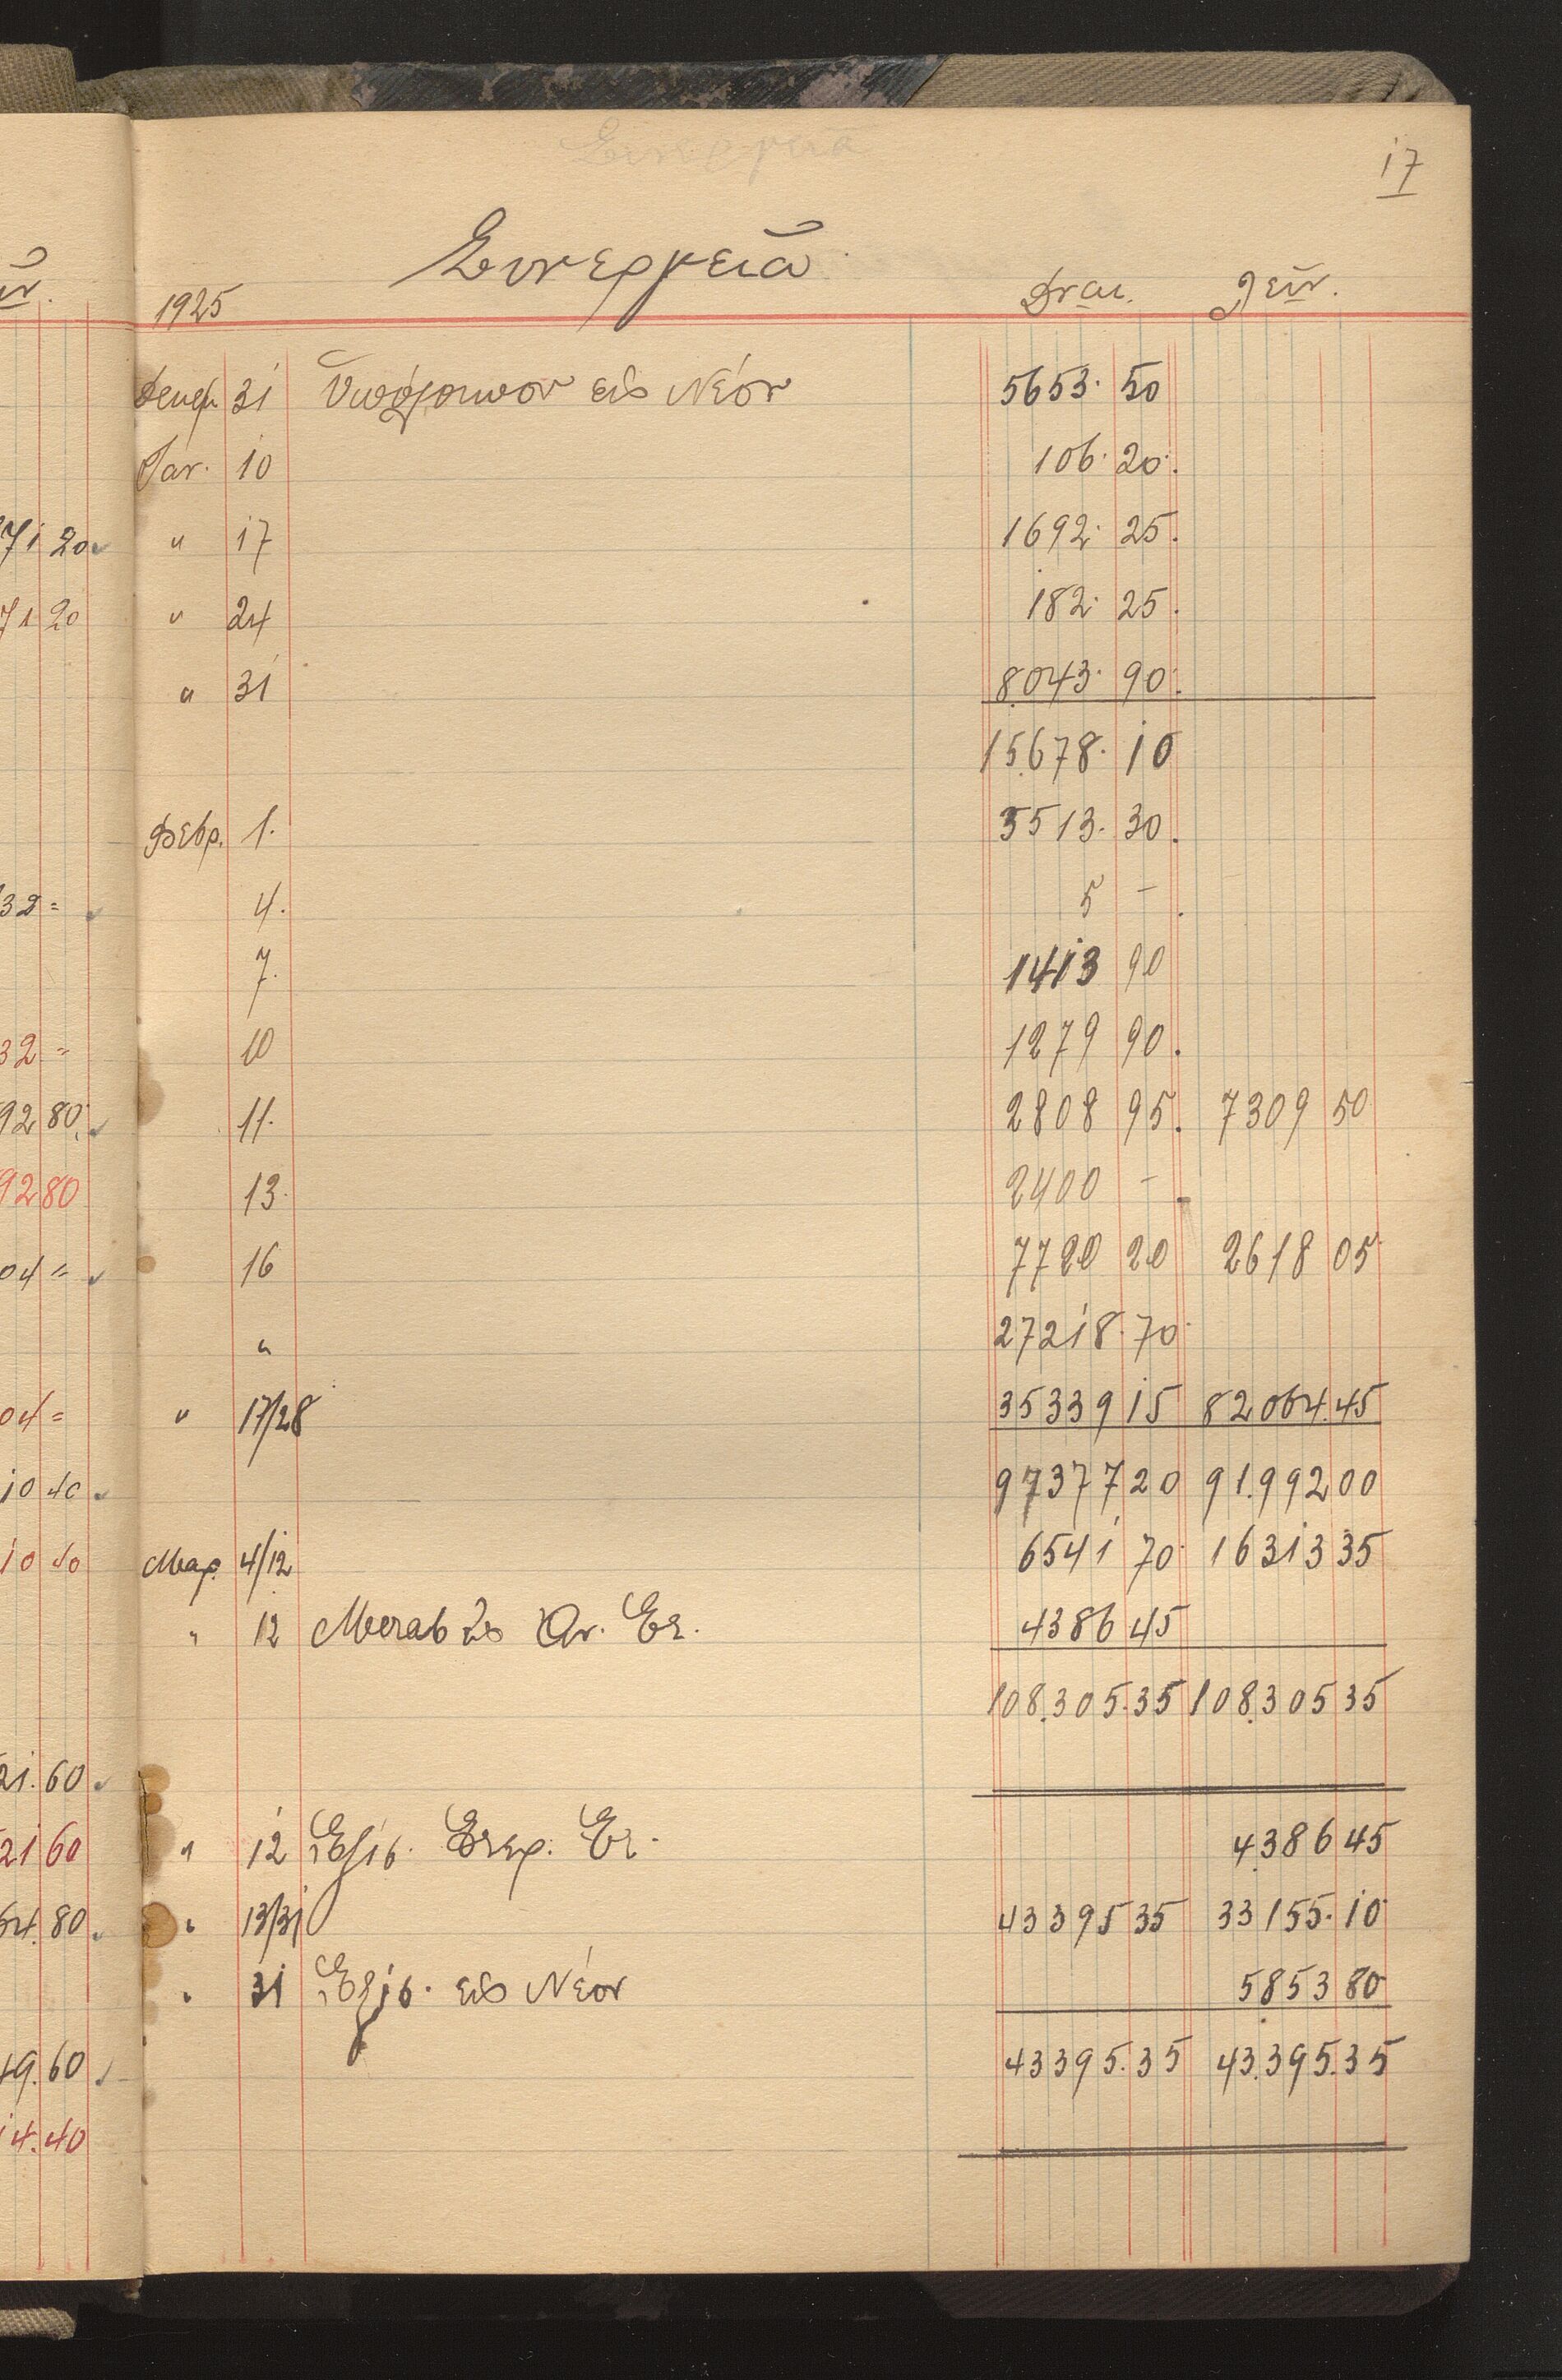 17
Συνεργεῖα
1925
Δοῦν. Λαβεῖν.
Δεκεμ 31 Ὑπόλοιπον εἰς Νέον 5653. 50
Ιαν. 10 106. 20.
" 17 1692. 25.
" 24 182. 25.
" 31 8.043. 90.
15.678. 10
Φεβρ. 1. 5513. 30.
4. 5 – .
7. 1413 90
10 1279 90.
11. 2808 95. 7309 50
13. 2400 – .
16 7720 20 2618 05
" 27218. 70
" 17/28 35339 15 82064.45
97377 20 91.992 00
Μαρ. 4/12 6541 70 16313 35
" 12 Μεταβ 4386 45
108.305.35 108.305 35
" 12 4.386 45
" 13/31 43395 35 33155. 10
" 31 εἰς Νέον 5.853 80
43395.35 43.395.35
71 20
71 20
32 =
32 =
92 80
92 80
04 =
04 =
10 40
10 40
21. 60
21 60
54. 80
49. 60
14. 40